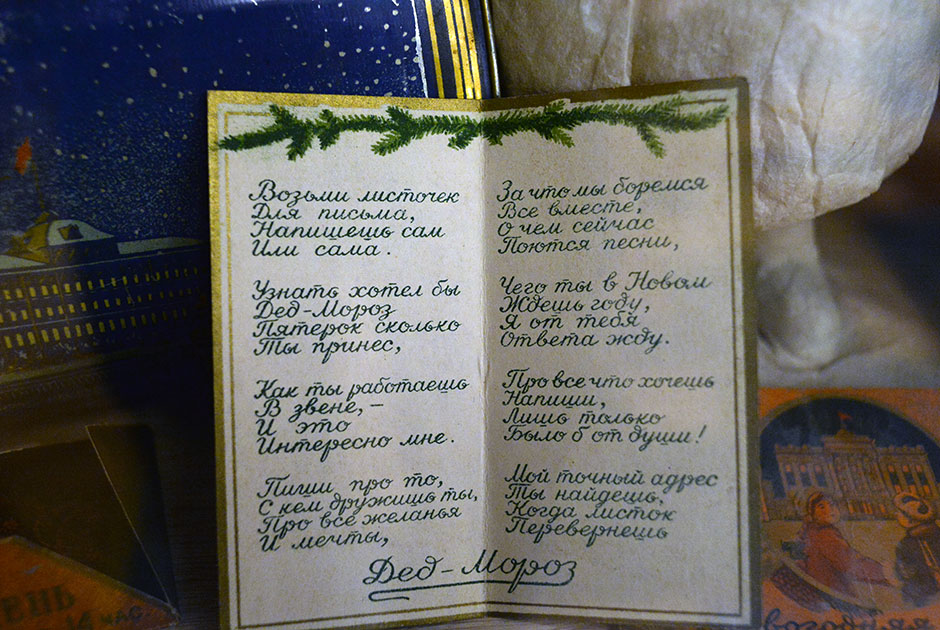 Возьми листочек
Для письма,
Напишешь сам
Или сама.
Узнать хотел бы
Дед-Мороз
Пятерок сколько
Ты принес,
Как ты работаешь
В звене,-
И это
Интересно мне.
Пиши про то,
С кем дружишь ты,
Про все желанья
И мечты,
За что мы боремся
Все вместе,
О чем сейчас
Поются песни,
Чего ты в Новом
Ждешь году,
Я от тебя
Ответа жду.
Про все что хочешь
Напиши,
Лишь только
Было б от души!
Мой точный адрес
Ты найдешь,
Когда листок
Перевернешь
Дед-Мороз
14 час.